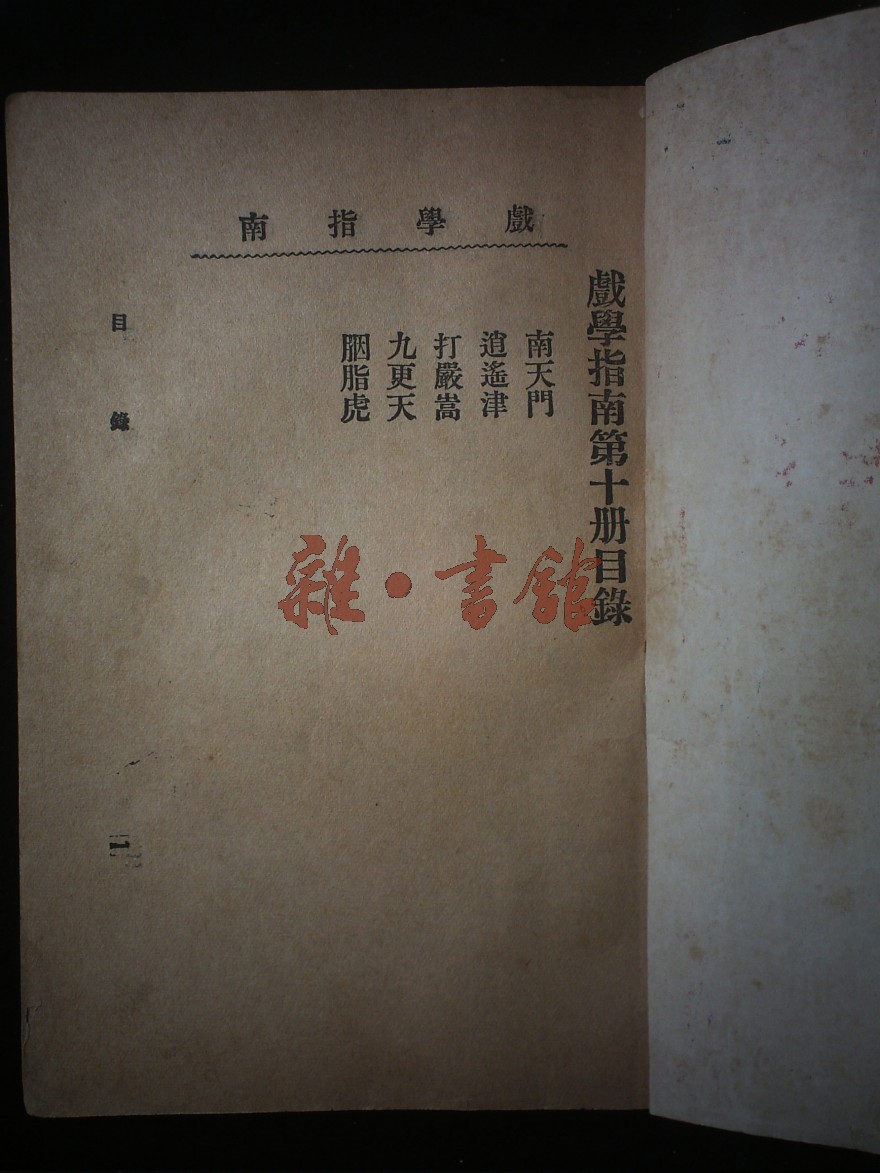 戲學指南
戲學指南第十册目錄
南天門
逍遙津
打嚴嵩
九更天
胭脂虎
目錄
一
雜·書館